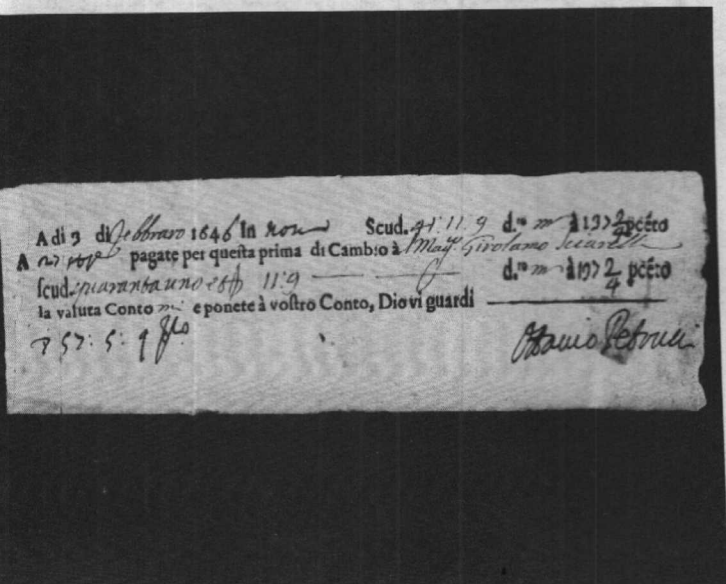 A di 3 di febbraro 1646 In Scud. 41:11:9 d.ᵐⁱ m à 137 2/4 pcéto
A pagate per questa prima di Cambio à Mag.ʳ Girolamo
scud. quaranta uno e 11:9 d.ᵐⁱ m à 137 2/4 pcéto
la valuta Conto mi e ponete à vostro Conto, Dio vi guardi
57:5:9
Ottavio Petrucci